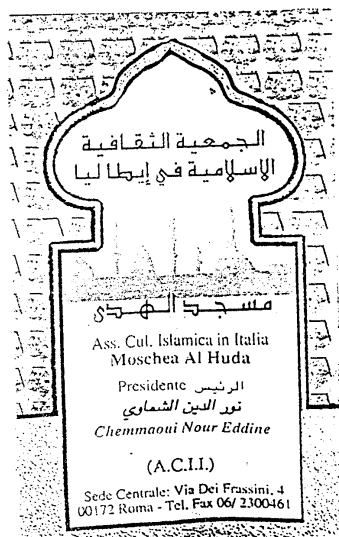 الجمعية الثقافية
الاسلامية في إيطاليا
مسجد الهدى
Ass. Cul. Islamica in Italia
Moschea Al Huda
Presidente الرئيس
نور الدين الشماوي
Chemmaoui Nour Eddine
(A.C.I.I.)
Sede Centrale: Via Dei Frassini, 4
00172 Roma - Tel. Fax 06/ 2300461